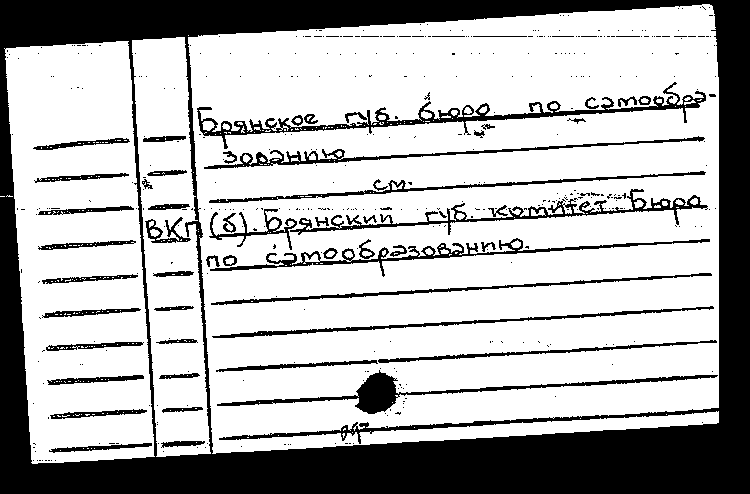 Брянское губ. бюро по самообра-
зованию
см.
ВКП(б). Брянский губ. комитет. Бюро
по самообразованию.